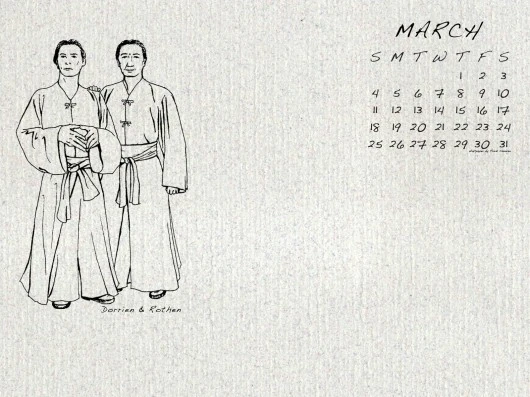 MARCH
S M T W T F S
1 2 3
4 5 6 7 8 9 10
11 12 13 14 15 16 17
18 19 20 21 22 23 24
25 26 27 28 29 30 31
Dorrien & Rothen